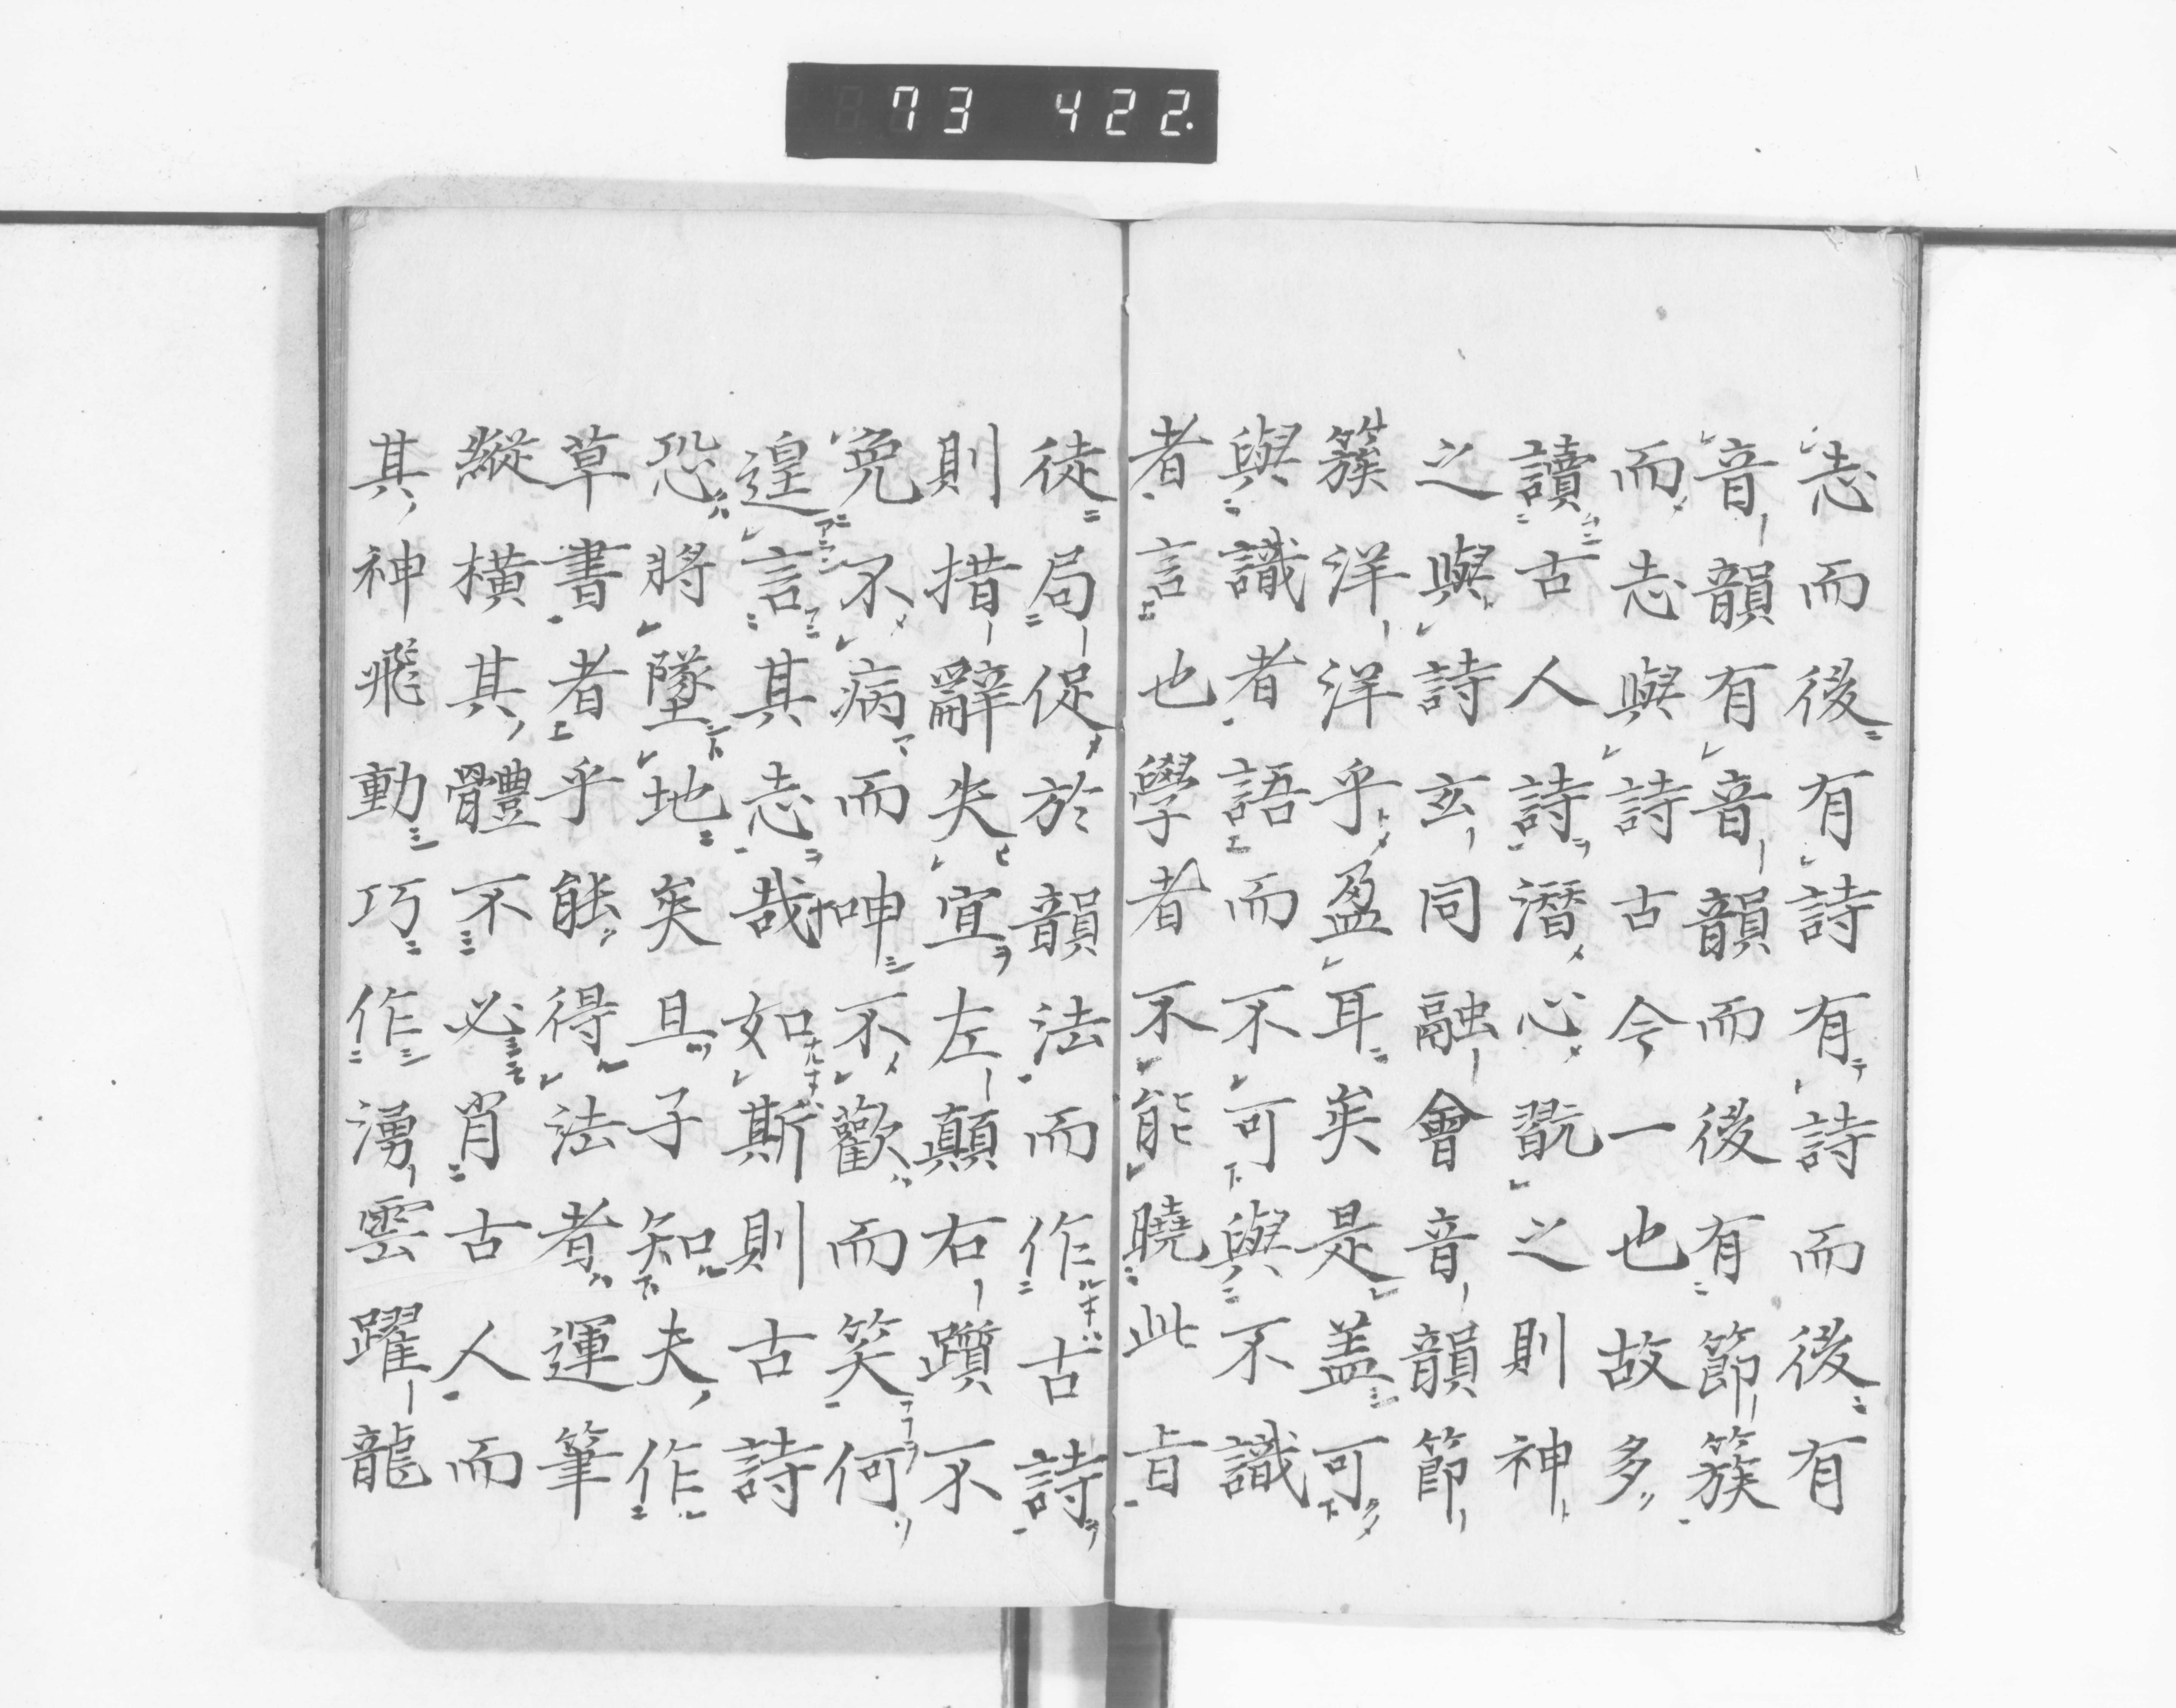 73 422.
志而後有詩有詩而後有
音韻有音韻而後有節簇
而志與詩古今一也故多
讀古人詩潛心翫之則神
之與詩玄同融會音韻節
簇洋洋乎盈耳矣是盖可
與識者語而不可與不識
者言也學者不能曉此旨
徒局促於韻法而作古詩
則措辭失宜左顛右躓不
免不病而呻不歡而笑何
遑言其志哉如斯則古詩
恐將墜地矣且子知夫作
草書者乎能得法者運筆
縱橫其體不必肖古人而
其神飛動巧作湧雲躍龍